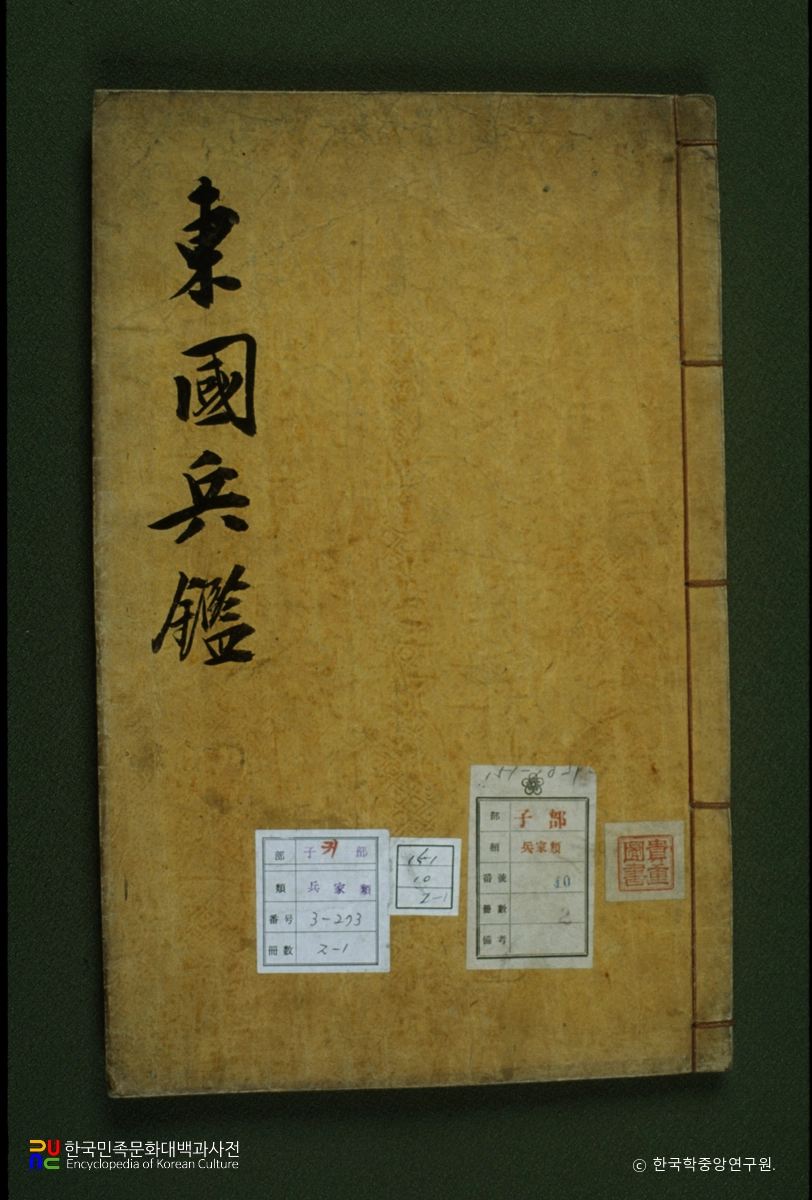 東國兵鑑
部 子 部
類 兵家類
番号 3-273
冊数 2-1
151
10
2-1
部 子部
類 兵家類
番號 10
冊數 2
備考
貴重
圖書
한국민족문화대백과사전
Encyclopedia of Korean Culture
© 한국학중앙연구원.